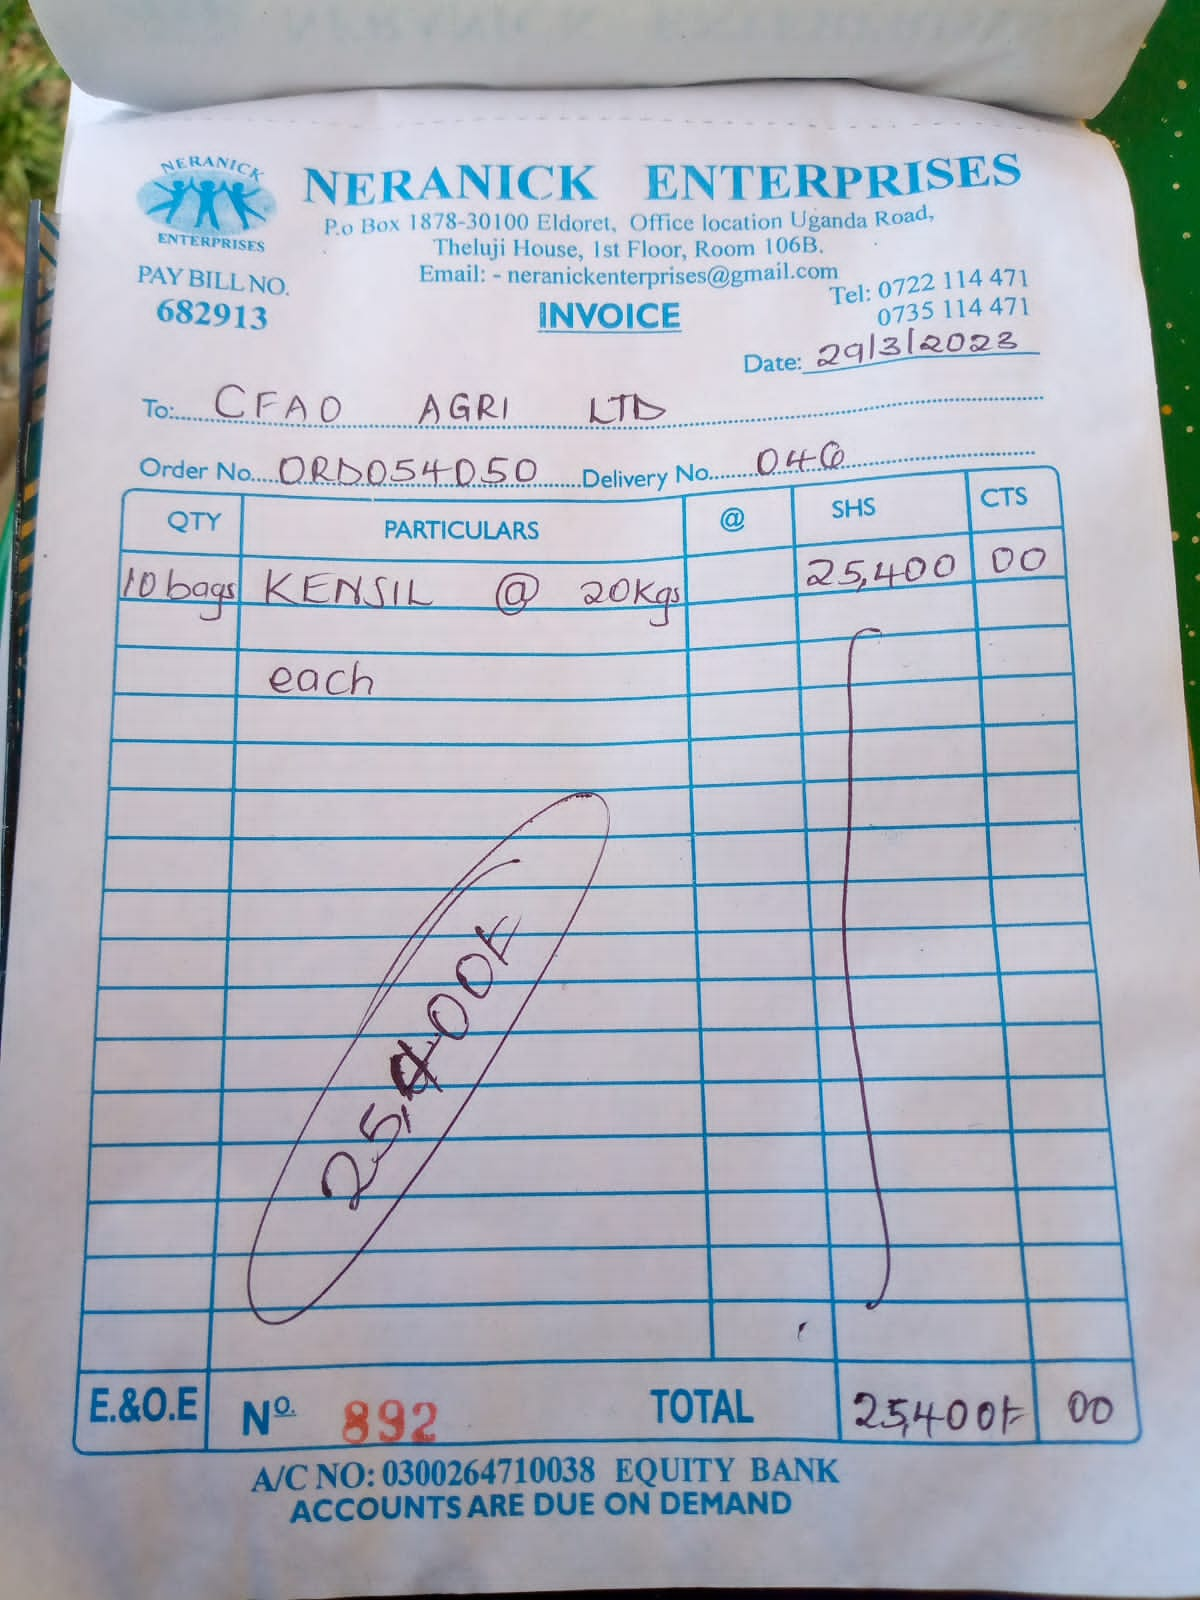 NERANICK
ENTERPRISES
NERANICK ENTERPRISES
P.o Box 1878-30100 Eldoret, Office location Uganda Road,
Theluji House, 1st Floor, Room 106B.
Email: - neranickenterprises@gmail.com
PAY BILL NO.
682913
Tel: 0722 114 471
0735 114 471
INVOICE
Date: 29/3/2023
To: CFAO AGRI LTD
Order No. ORD054050 Delivery No. 046
QTY PARTICULARS @ SHS CTS
10 bags KENSIL @ 20Kgs 25,400 00
each
25,400/=
E.&O.E No. 892 TOTAL 25,400/= 00
A/C NO: 0300264710038 EQUITY BANK
ACCOUNTS ARE DUE ON DEMAND